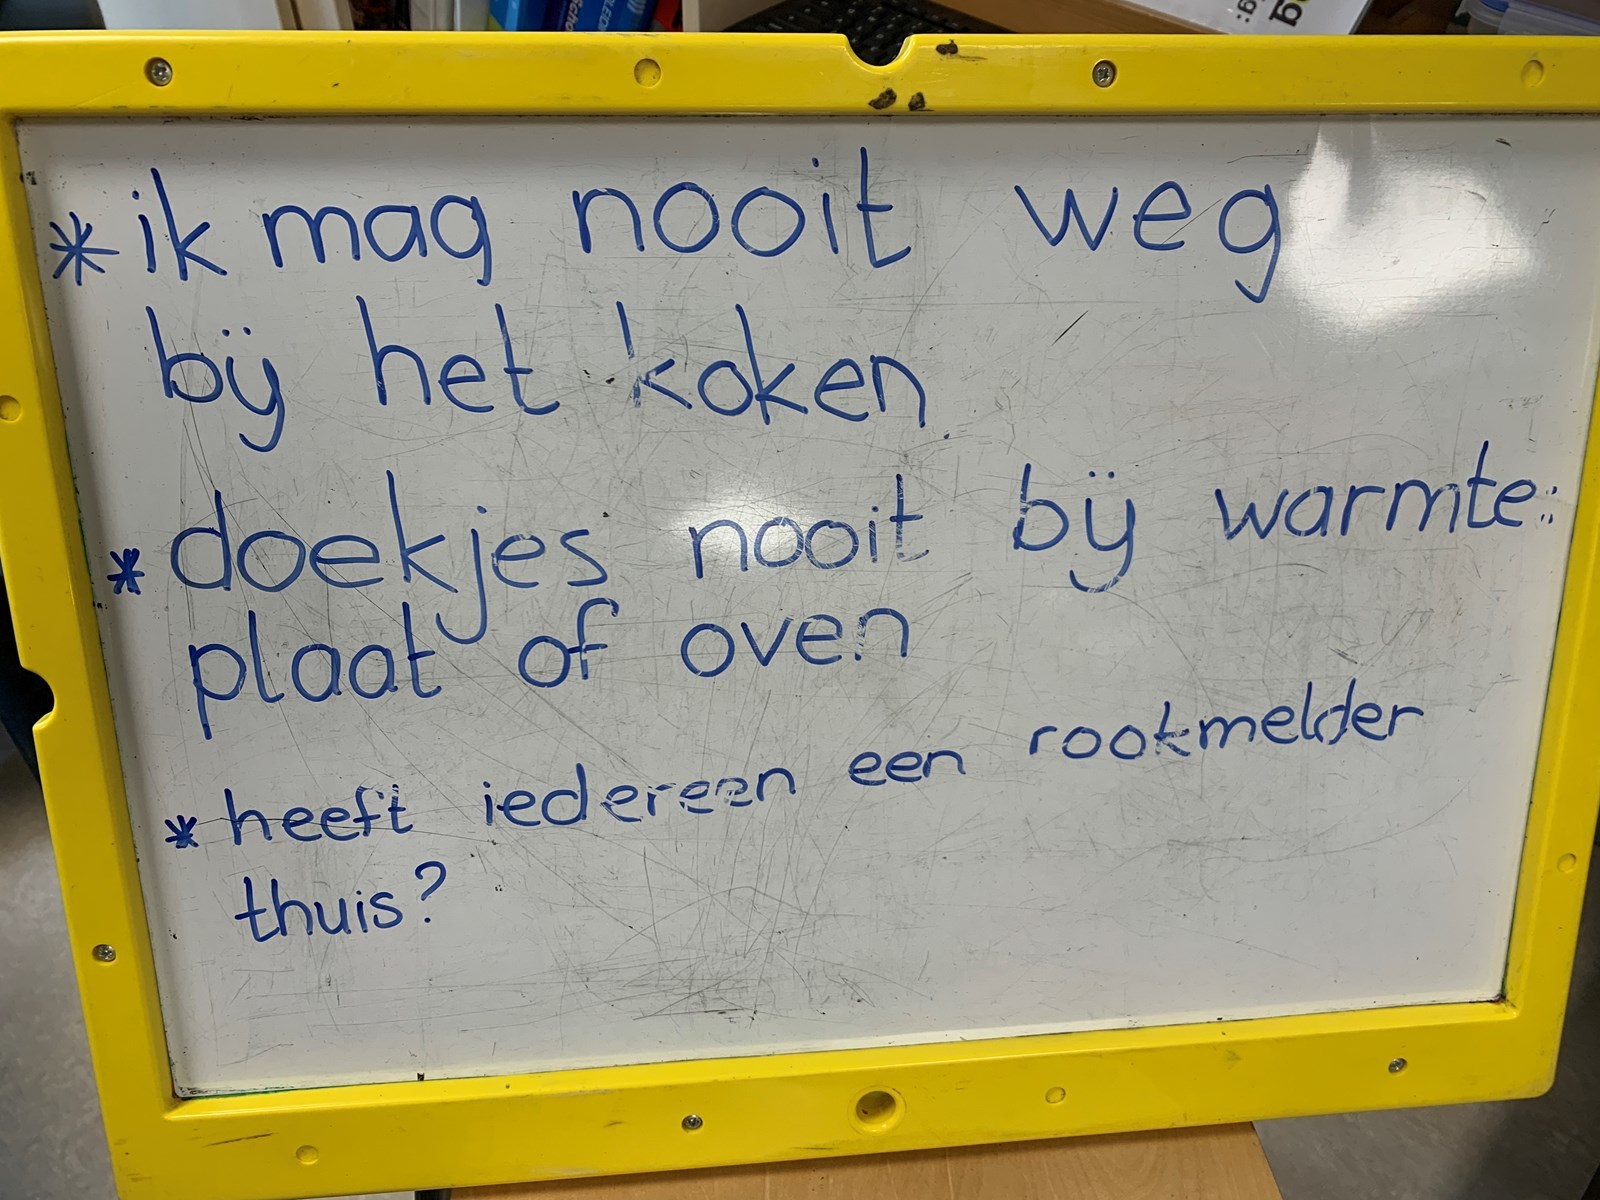 * ik mag nooit weg
bij het koken.
* doekjes nooit bij warmte:
plaat of oven
* heeft iedereen een rookmelder
thuis?